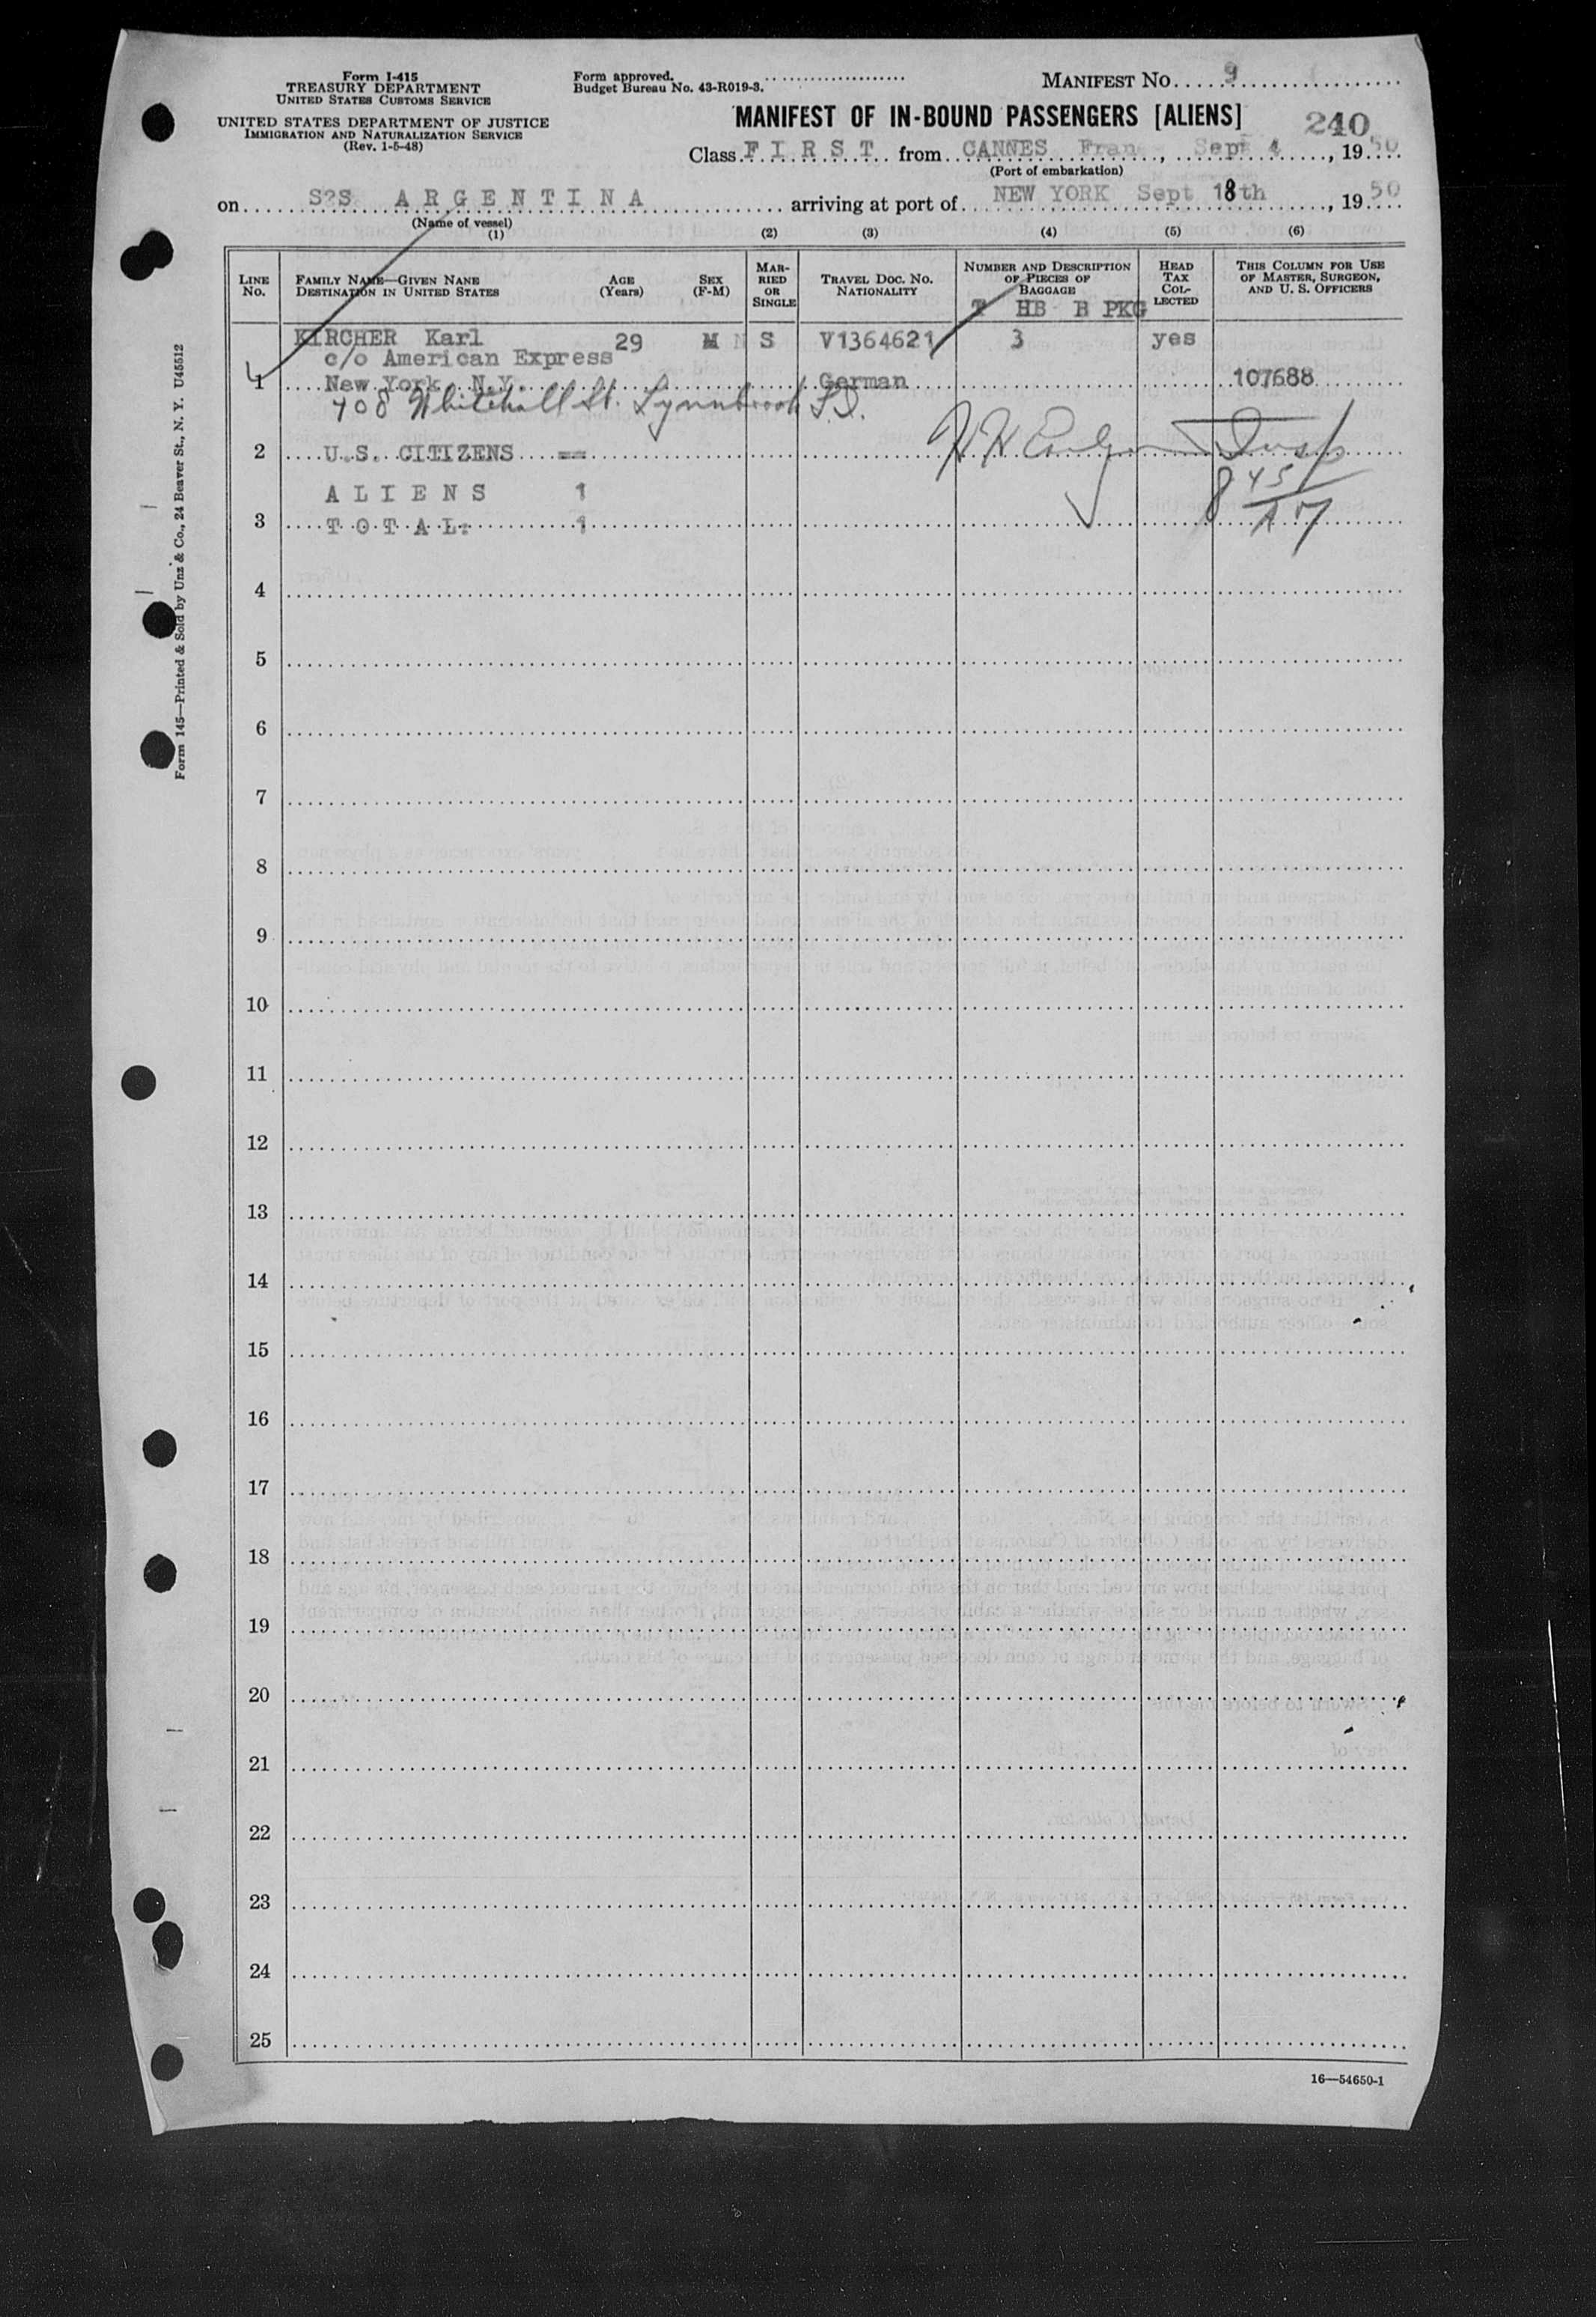 Form I-415
TREASURY DEPARTMENT
UNITED STATES CUSTOMS SERVICE
UNITED STATES DEPARTMENT OF JUSTICE
IMMIGRATION AND NATURALIZATION SERVICE
(Rev. 1-5-48)
Form approved.
Budget Bureau No. 43-R019-3.
MANIFEST NO. 9
MANIFEST OF IN-BOUND PASSENGERS [ALIENS]
240
Class FIRST from CANNES Fran, Sept 4, 1950
(Port of embarkation)
on S?S ARGENTINA arriving at port of NEW YORK Sept 18th, 1950
(Name of vessel)
(1) (2) (3) (4) (5) (6)
LINE NO.
FAMILY NAME—GIVEN NANE
DESTINATION IN UNITED STATES
AGE (Years)
SEX (F-M)
MARRIED OR SINGLE
TRAVEL DOC. NO.
NATIONALITY
NUMBER AND DESCRIPTION
OF PIECES OF
BAGGAGE
T HB B PKG
HEAD
TAX
COL-
LECTED
THIS COLUMN FOR USE
OF MASTER, SURGEON,
AND U. S. OFFICERS
KIRCHER Karl 29 M S V1364621 3 yes
c/o American Express
1 New York N.Y. German 107688
408 Whitehall St. Lynnbrook L.I.
2 U.S. CITIZENS ==
ALIENS 1
3 TOTAL: 1
8 45/
4
5
6
7
8
9
10
11
12
13
14
15
16
17
18
19
20
21
22
23
24
25
16—54650-1
Form 145—Printed & Sold by Unz & Co., 24 Beaver St., N. Y. U45512